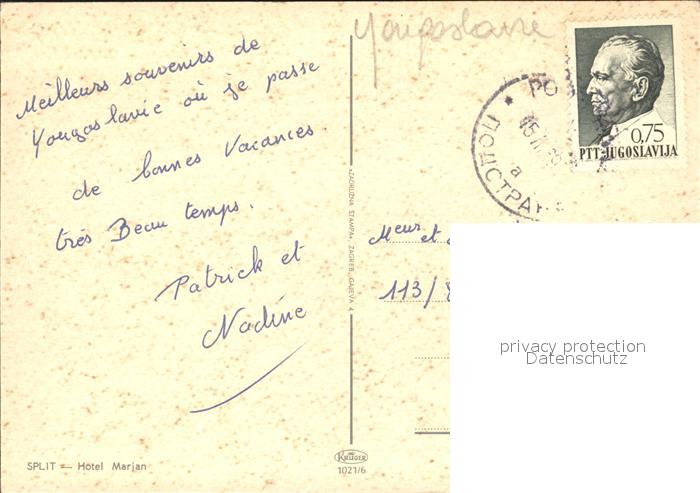 Yougoslavie
Meilleurs souvenirs de
Yougoslavie où je passe
de bonnes vacances.
très Beau temps.
Patrick et
Nadine
0,75
PTT-JUGOSLAVIJA
«ZADRUŽNA ŠTAMPA», ZAGREB, GAJEVA 4
Meur et
113/
privacy protection
Datenschutz
SPLIT — Hotel Marjan
KRÜGER
1021/6